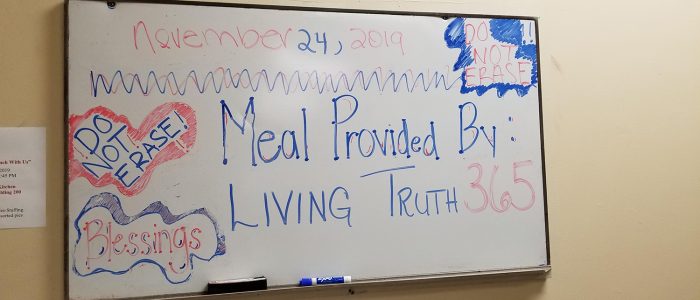 November 24, 2019
DO
NOT
ERASE!!
DO
NOT
ERASE!
Meal Provided By:
LIVING TRUTH 365
Blessings
with Us"
2019
:45 PM
Kitchen
EXPO